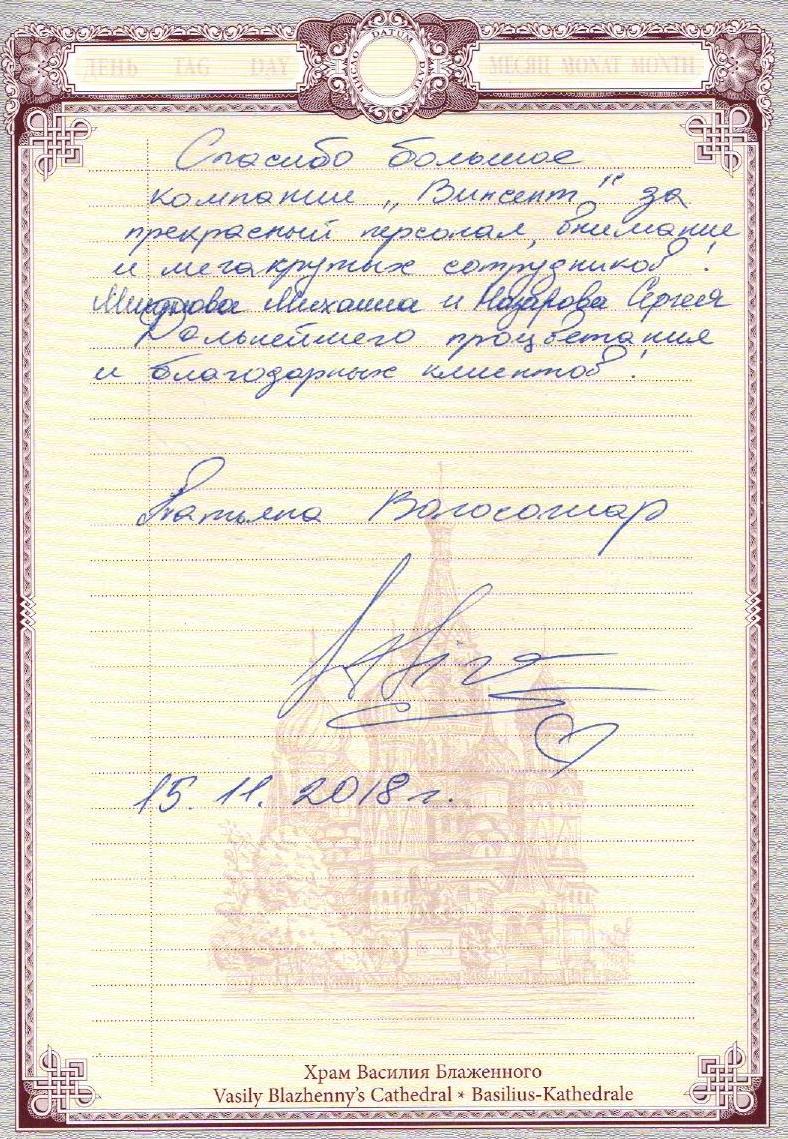 ДЕНЬ TAG DAY
ЧИСЛО DATUM DATE
МЕСЯЦ MONAT MONTH
Спасибо большое
компании „Винсент" за
прекрасный персонал, внимание
и мегакрутых сотрудников!
Михаила и Назарова Сергея
Дальнейшего процветания
и благодарных клиентов!
Татьяна Волосожар
15.11.2018 г.
Храм Василия Блаженного
Vasily Blazhenny's Cathedral * Basilius-Kathedrale